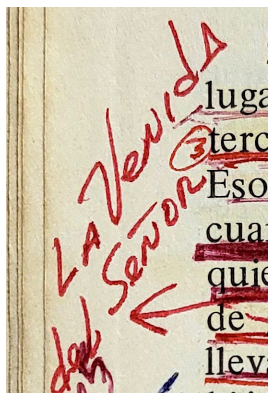 LA VENIDA
del SEÑOR
3
luga
terc
Eso
cuar
quie
de
lleva